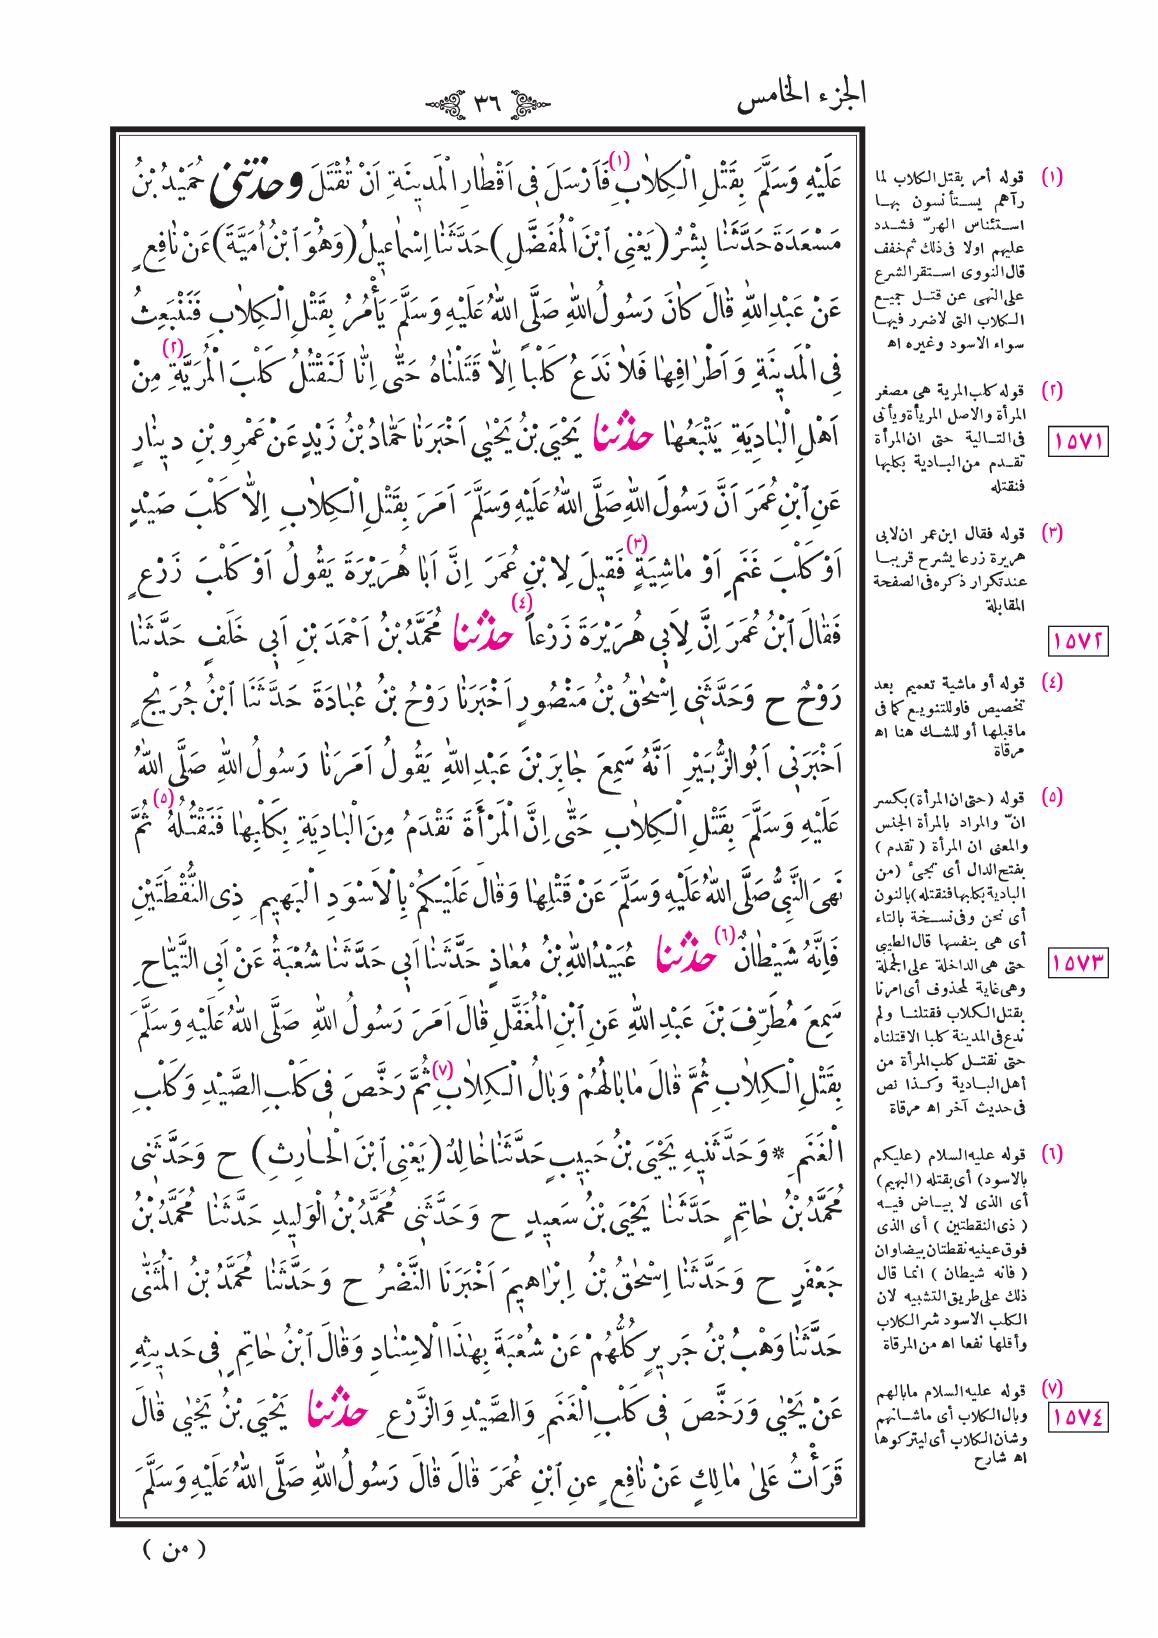 الجزء الخامس
٣٦
عَلَيْهِ وَسَلَّمَ بِقَتْلِ الْكِلَابِ(١) فَاَرْسَلَ فِى اَقْطَارِ الْمَدينَةِ اَنْ تُقْتَلَ وحدثنى حُمَيْدُ بْنُ
مَسْعَدَةَ حَدَّثَنَا بِشْرٌ (يَعْنِى ابْنَ الْمُفَضَّلِ) حَدَّثَنَا اِسْمَاعيلُ (وَهُوَ ابْنُ اُمَيَّةَ) عَنْ نَافِعٍ
عَنْ عَبْدِ اللهِ قَالَ كَانَ رَسُولُ اللهِ صَلَّى اللهُ عَلَيْهِ وَسَلَّمَ يَأْمُرُ بِقَتْلِ الْكِلَابِ فَنَنْبَعِثُ
فِى الْمَدينَةِ وَاَطْرَافِهَا فَلَا نَدَعُ كَلْباً اِلَّا قَتَلْنَاهُ حَتَّى اِنَّا لَنَقْتُلُ كَلْبَ الْمُرَيَّةِ(٢) مِنْ
اَهْلِ الْبَادِيَةِ يَتْبَعُهَا حدثنا يَحْيَى بْنُ يَحْيَى اَخْبَرَنَا حَمَّادُ بْنُ زَيْدٍ عَنْ عَمْرِو بْنِ دينَارٍ
عَنِ ابْنِ عُمَرَ اَنَّ رَسُولَ اللهِ صَلَّى اللهُ عَلَيْهِ وَسَلَّمَ اَمَرَ بِقَتْلِ الْكِلَابِ اِلَّا كَلْبَ صَيْدٍ
اَوْ كَلْبَ غَنَمٍ اَوْ مَاشِيَةٍ(٣) فَقيلَ لِابْنِ عُمَرَ اِنَّ اَبَا هُرَيْرَةَ يَقُولُ اَوْ كَلْبَ زَرْعٍ
فَقَالَ ابْنُ عُمَرَ اِنَّ لِاَبى هُرَيْرَةَ زَرْعاً(٤) حدثنا مُحَمَّدُ بْنُ اَحْمَدَ بْنِ اَبى خَلَفٍ حَدَّثَنَا
رَوْحٌ ح وَحَدَّثَنى اِسْحٰقُ بْنُ مَنْصُورٍ اَخْبَرَنَا رَوْحُ بْنُ عُبَادَةَ حَدَّثَنَا ابْنُ جُرَيْجٍ
اَخْبَرَنى اَبُو الزُّبَيْرِ اَنَّهُ سَمِعَ جَابِرَ بْنَ عَبْدِ اللهِ يَقُولُ اَمَرَنَا رَسُولُ اللهِ صَلَّى اللهُ
عَلَيْهِ وَسَلَّمَ بِقَتْلِ الْكِلَابِ حَتَّى اِنَّ الْمَرْأَةَ تَقْدَمُ مِنَ الْبَادِيَةِ بِكَلْبِهَا فَنَقْتُلُهُ(٥) ثُمَّ
نَهَى النَّبِىُّ صَلَّى اللهُ عَلَيْهِ وَسَلَّمَ عَنْ قَتْلِهَا وَقَالَ عَلَيْكُمْ بِالْاَسْوَدِ الْبَهيمِ ذِى النُّقْطَتَيْنِ
فَاِنَّهُ شَيْطَانٌ(٦) حدثنا عُبَيْدُ اللهِ بْنُ مُعَاذٍ حَدَّثَنَا اَبى حَدَّثَنَا شُعْبَةُ عَنْ اَبِى التَّيَّاحِ
سَمِعَ مُطَرِّفَ بْنَ عَبْدِ اللهِ عَنِ ابْنِ الْمُغَفَّلِ قَالَ اَمَرَ رَسُولُ اللهِ صَلَّى اللهُ عَلَيْهِ وَسَلَّمَ
بِقَتْلِ الْكِلَابِ ثُمَّ قَالَ مَا بَالُهُمْ وَبَالُ الْكِلَابِ(٧) ثُمَّ رَخَّصَ فى كَلْبِ الصَّيْدِ وَكَلْبِ
الْغَنَمِ * وَحَدَّثَنيهِ يَحْيَى بْنُ حَبيبٍ حَدَّثَنَا خَالِدٌ (يَعْنِى ابْنَ الْحَارِثِ) ح وَحَدَّثَنى
مُحَمَّدُ بْنُ حَاتِمٍ حَدَّثَنَا يَحْيَى بْنُ سَعيدٍ ح وَحَدَّثَنى مُحَمَّدُ بْنُ الْوَليدِ حَدَّثَنَا مُحَمَّدُ بْنُ
جَعْفَرٍ ح وَحَدَّثَنَا اِسْحٰقُ بْنُ اِبْرَاهيمَ اَخْبَرَنَا النَّضْرُ ح وَحَدَّثَنَا مُحَمَّدُ بْنُ الْمُثَنَّى
حَدَّثَنَا وَهْبُ بْنُ جَريرٍ كُلُّهُمْ عَنْ شُعْبَةَ بِهٰذَا الْاِسْنَادِ وَقَالَ ابْنُ حَاتِمٍ فى حَديثِهِ
عَنْ يَحْيَى وَرَخَّصَ فى كَلْبِ الْغَنَمِ وَالصَّيْدِ وَالزَّرْعِ حدثنا يَحْيَى بْنُ يَحْيَى قَالَ
قَرَأْتُ عَلَى مَالِكٍ عَنْ نَافِعٍ عَنِ ابْنِ عُمَرَ قَالَ قَالَ رَسُولُ اللهِ صَلَّى اللهُ عَلَيْهِ وَسَلَّمَ
( من )
(١) قوله أمر بقتل الكلاب لما
رآهم يستأنسون بها
استئناس الهرّ فشدد
عليهم اولا فى ذلك ثم خفف
قال النووى استقر الشرع
على النهى عن قتل جميع
الكلاب التى لا ضرر فيها
سواء الاسود وغيره اه
(٢) قوله كلب المرية هى مصغر
المرأة والاصل المريأة ويأتى
فى التالية حتى ان المرأة
تقدم من البادية بكلبها
فنقتله
١٥٧١
(٣) قوله فقال ابن عمر ان لابى
هريرة زرعا يشرح قريبا
عند تكرار ذكره فى الصفحة
المقابلة
١٥٧٢
(٤) قوله أو ماشية تعميم بعد
تخصيص فاو للتنويع كما فى
ماقبلها أو للشك هنا اه
مرقاة
(٥) قوله (حتى ان المرأة) بكسر
انّ والمراد بالمرأة الجنس
والمعنى ان المرأة ( تقدم )
بفتح الدال أى تجىء (من
البادية بكلبها فنقتله) بالنون
أى نحن وفى نسخة بالتاء
أى هى بنفسها قال الطيبى
حتى هى الداخلة على الجملة
وهى غاية لمحذوف أى امرنا
بقتل الكلاب فقتلنا ولم
ندع فى المدينة كلبا الا قتلناه
حتى نقتل كلب المرأة من
أهل البادية وكذا نص
فى حديث آخر اه مرقاة
١٥٧٣
(٦) قوله عليه السلام (عليكم
بالاسود) أى بقتله (البهيم)
أى الذى لا بياض فيه
( ذى النقطتين ) أى الذى
فوق عينيه نقطتان بيضاوان
( فانه شيطان ) انما قال
ذلك على طريق التشبيه لان
الكلب الاسود شر الكلاب
وأقلها نفعا اه من المرقاة
(٧) قوله عليه السلام مابالهم
وبال الكلاب أى ماشانهم
وشان الكلاب أى ليتركوها
اه شارح
١٥٧٤